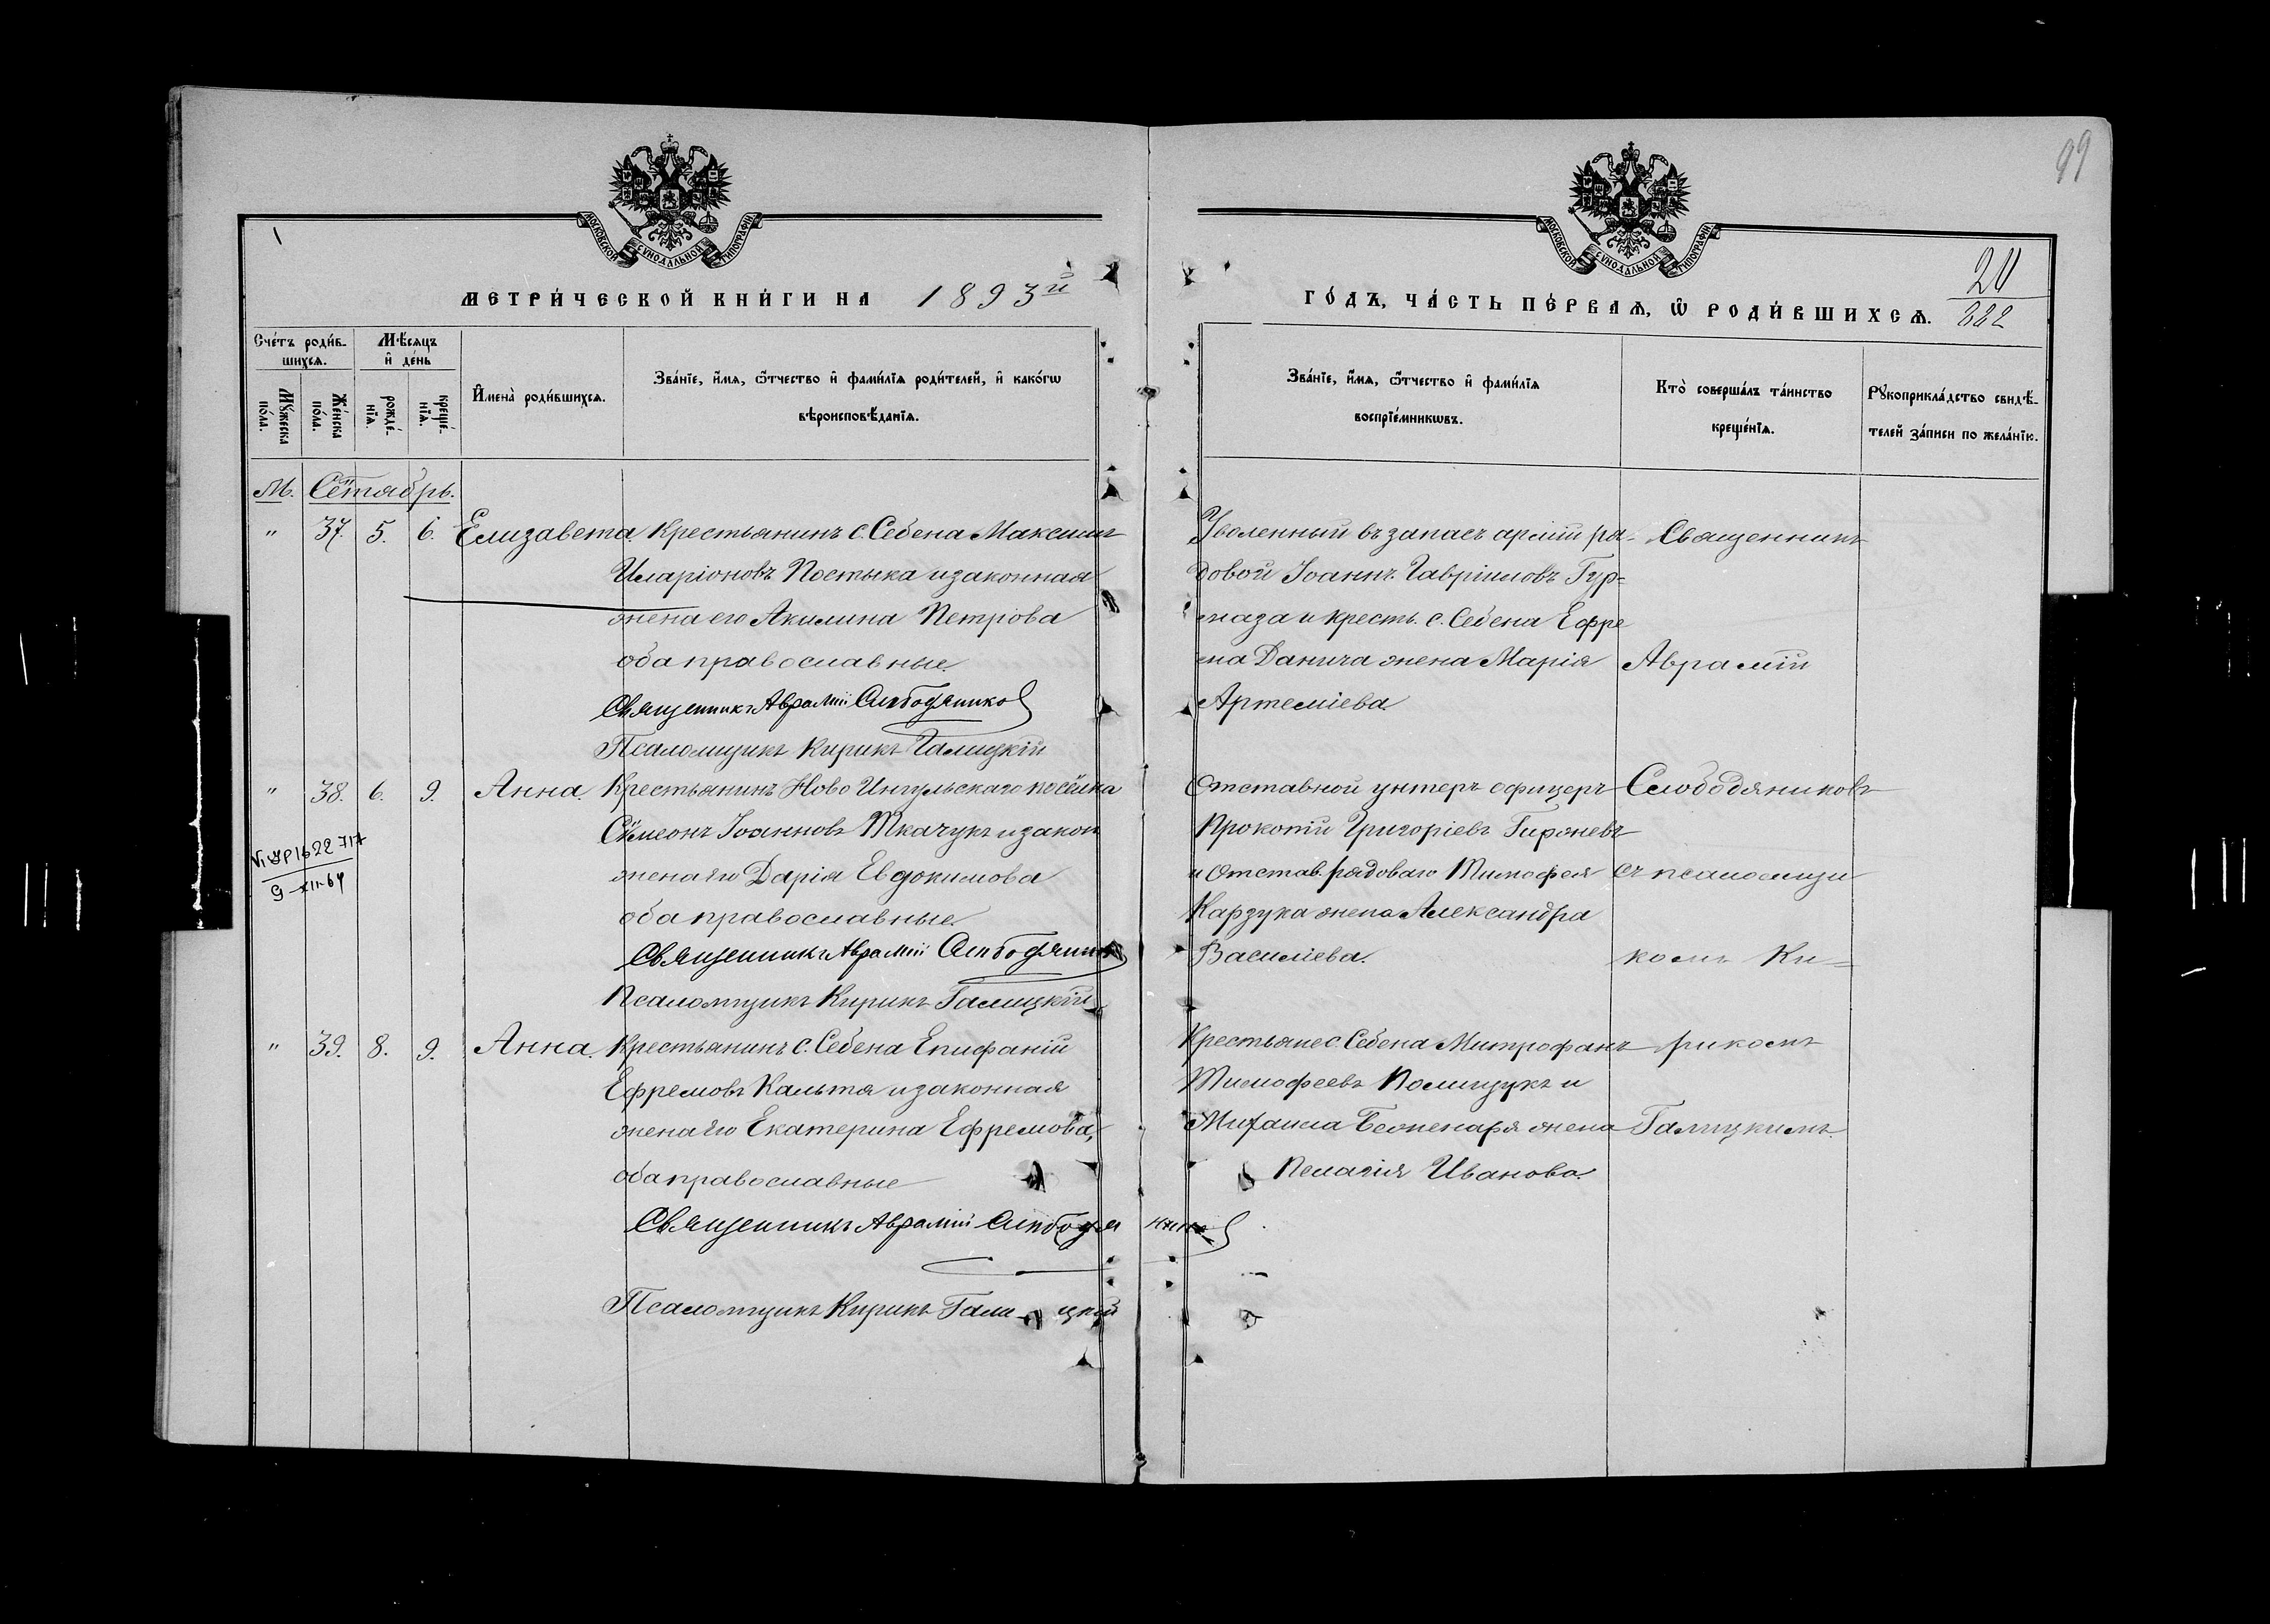 99
МОСКОВСКОЙ СѴНОДАЛЬНОЙ ТИПОГРАФІИ
МОСКОВСКОЙ СѴНОДАЛЬНОЙ ТИПОГРАФІИ
МЕТРИ́ЧЕСКОЙ КНИ́ГИ НА 1893й
ГО́ДЪ, ЧА́СТЬ ПЕ́РВАѦ, Ѽ РОДИ́ВШИХСѦ.
222
Сче́тъ роди́в-
шихсѧ.
Мꙋ́жеска по́ла.
Же́нска по́ла.
Мѣ́сяцъ
и҆ де́нь
рожде́-
нїѧ.
креще́-
нїѧ.
И҆мена̀ роди́вшихсѧ.
Зва́нїе, и҆́мѧ, ѻ҆́тчество и҆ фами́лїѧ роди́телей, и҆ како́гѡ
вѣроисповѣ́данїѧ.
Зва́нїе, и҆́мѧ, ѻ҆́тчество и҆ фами́лїѧ
воспрїе́мникѡвъ.
Кто̀ соверша́лъ та́инство
креще́нїѧ.
Рꙋкоприкла́дство свидѣ́-
телей за́писи по жела́нїю.
М. Сентябрь.
" 37. 5. 6. Елизавета
Крестьянинъ с. Себена Максимъ
Иларіоновъ Постыка и законная
жена его Акилина Петрова
оба православные.
Священникъ Аврамій Слободяниковъ
Псаломщикъ Кирикъ Галицкій
Уволенный въ запасъ арміи ря-
довой Іоаннъ Гавріиловъ Гур-
маза и кресть. с. Себена Ефре
ма Данича жена Марія
Артеміева.
" 38. 6. 9. Анна.
9-XII-64
Крестьянинъ Ново Ингульскаго посёлка
Сѵмеонъ Іоанновъ Ткачукъ и закон
жена его Дарія Евдокимова
оба православные.
Священникъ Аврамій Слободяников
Псаломщикъ Кирикъ Галицкій
Отставной унтеръ офицеръ
Прокопій Григоріевъ Гиржевъ
и Отстав. рядоваго Тимофея
Карзука жена Александра
Василіева.
" 39. 8. 9. Анна.
Крестьянинъ с. Себена Епифаній
Ефремовъ Кальтя и законная
жена его Екатерина Ефремова,
оба православные
Священникъ Аврамій Слободяников
Псаломщикъ Кирикъ Галицкій
Крестьяне с. Себена Митрофанъ
Тимофеевъ Полищукъ и
Михаила жена
Пелагія Иванова.
Священникъ
Аврамій
Слободяниковъ
съ псаломщи
комъ Ки=
рикомъ
Галицкимъ.